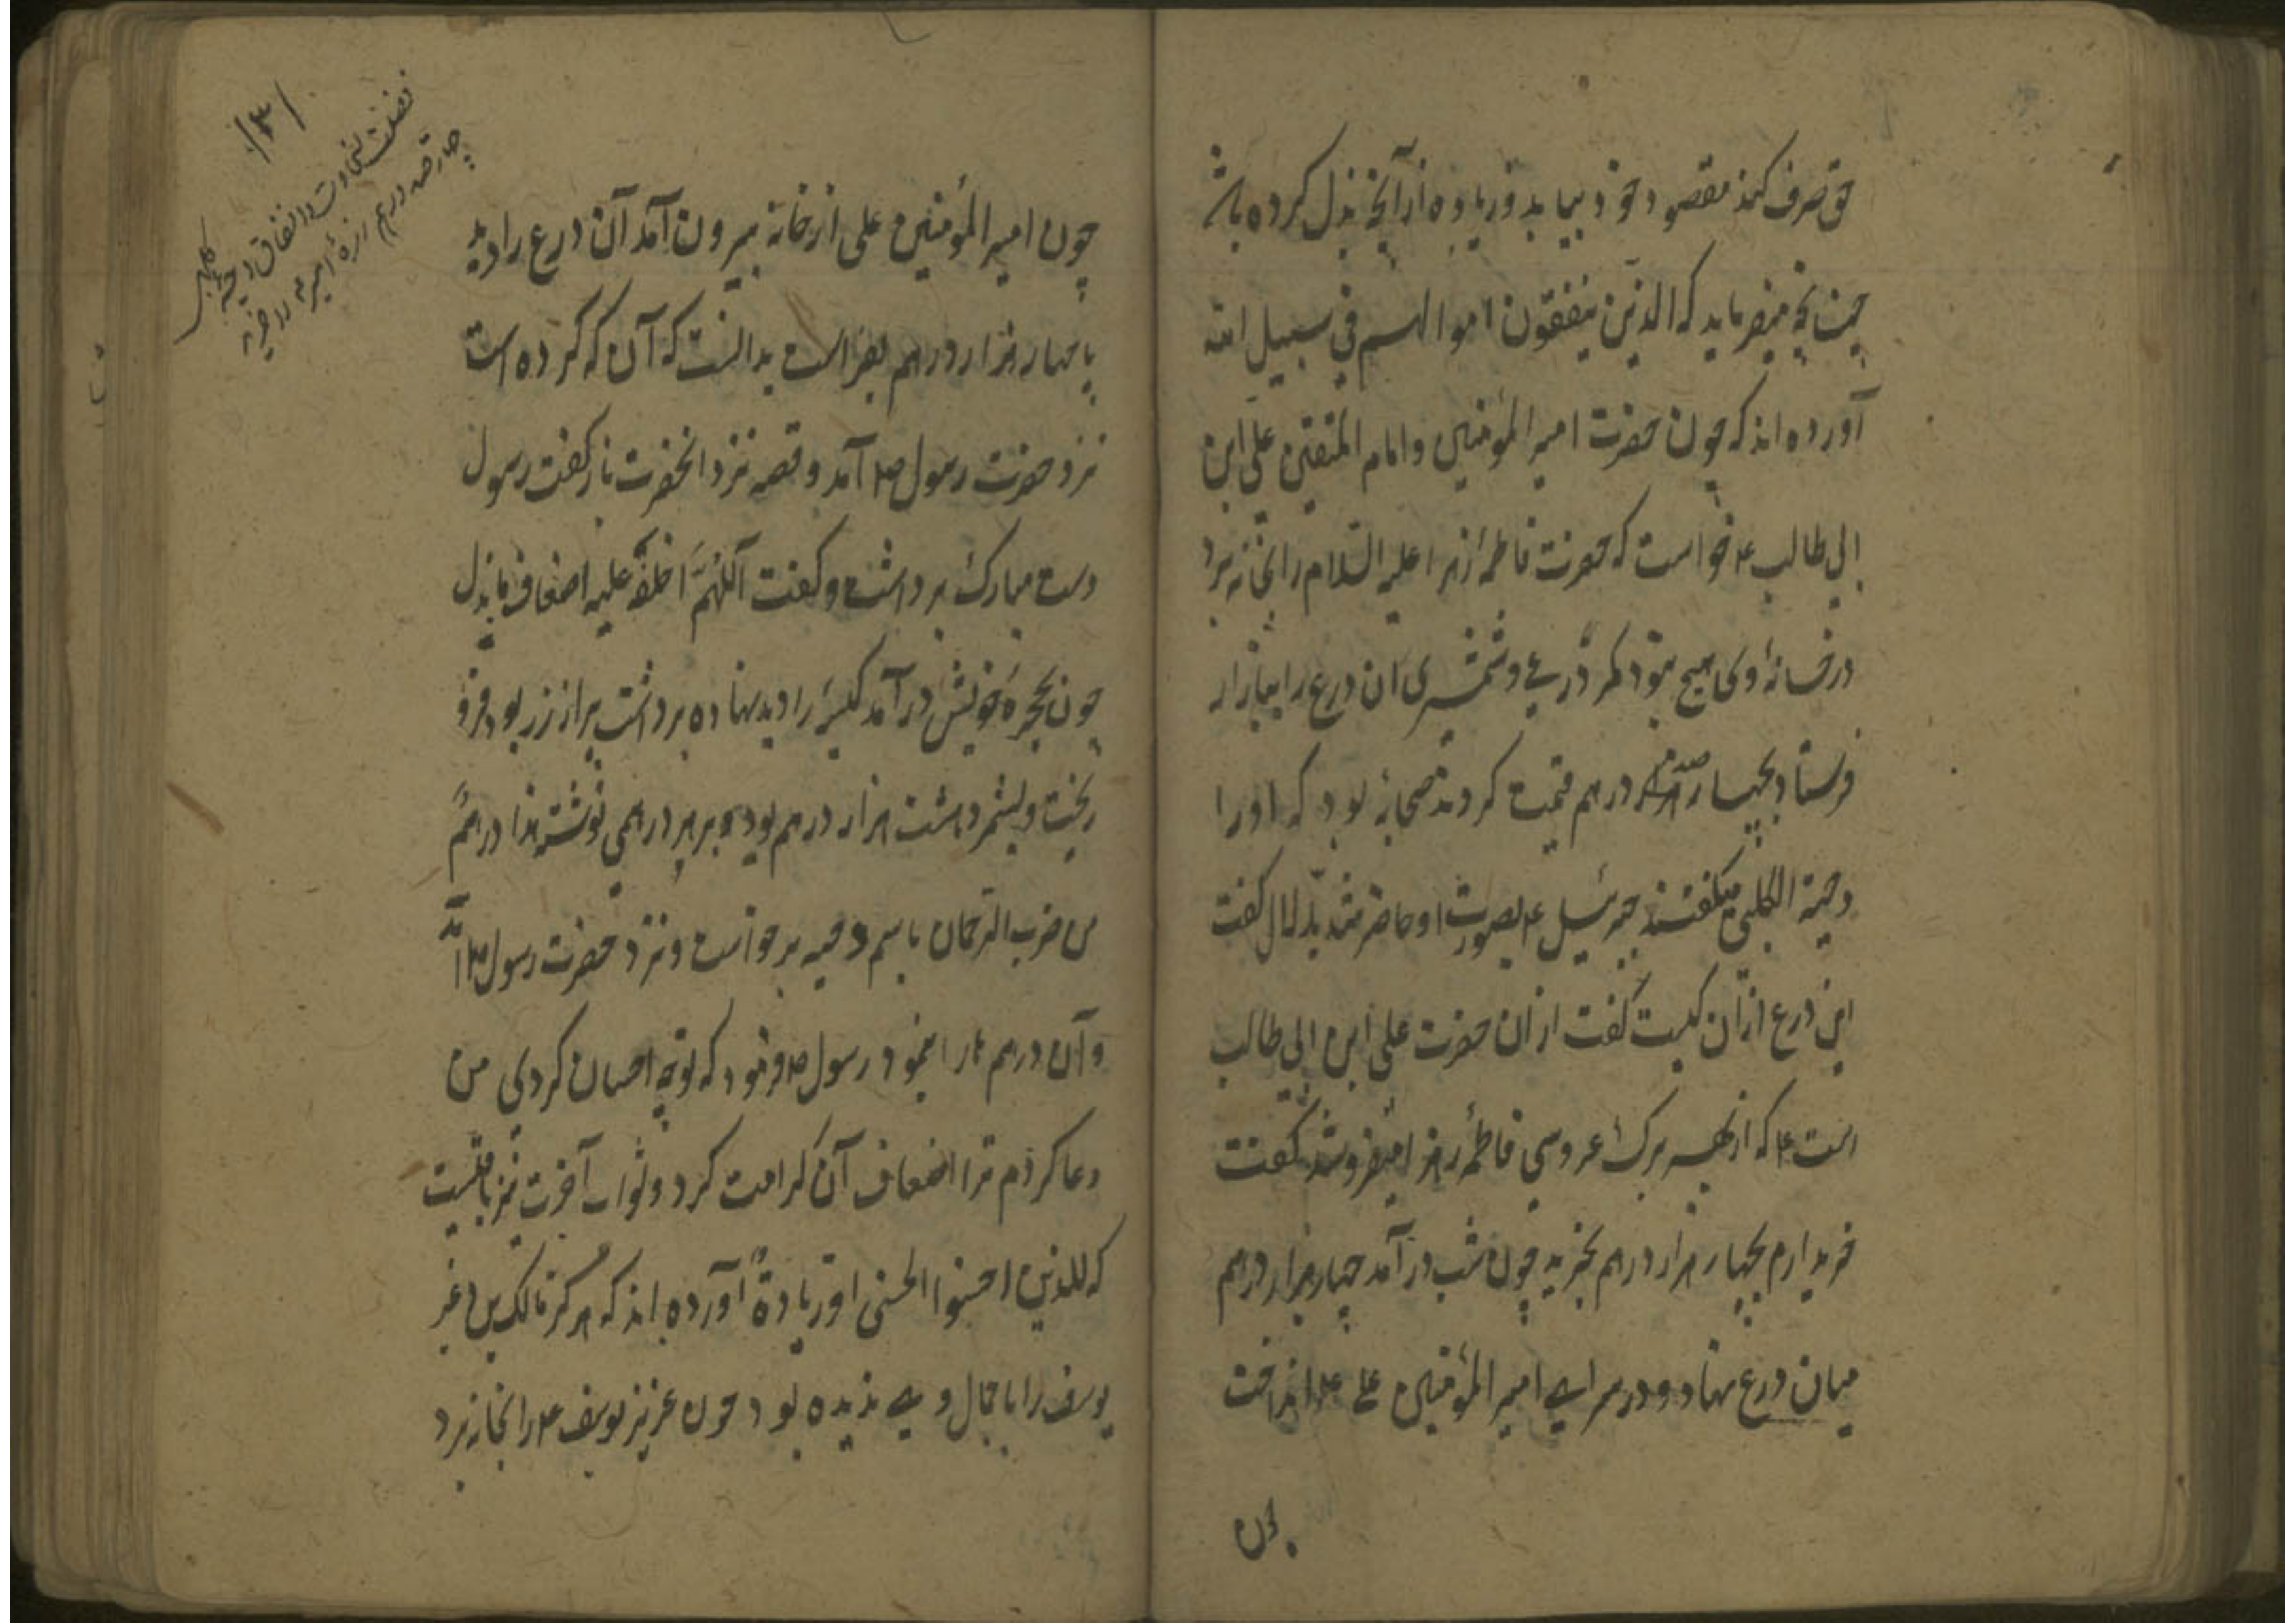 حق صرف کند مقصود خود بیابد و زیاده از آنچه بذل کرده باشد
چنانچه میفرماید که الذین ینفقون اموالهم فی سبیل الله
آورده اند که چون حضرت امیر المؤمنین و امام المتقین علی ابن
ابی طالب ع خواست که حضرت فاطمهٔ زهرا علیه السّلام را بخانه برد
در خانهٔ وی هیچ نبود مگر درعی و شمشیری ان درع را ببازار
فرستاد بچهار صد درهم قیمت کردند صحابهٔ بود که او را
دحیة الکلبی میگفتند جبرئیل ع بصورت او حاضر شد بدلال گفت
این درع از آن کیست گفت از ان حضرت علی ابن ابی طالب
است ع که از بهر برک عروسی فاطمهٔ زهرا میفروشد گفت
خریدارم بچهار هزار درهم بخرید چون شب در آمد چهار هزار درهم
میان درع نهاد و در سرای امیر المؤمنین علی ع انداخت
چون
چون امیر المؤمنین علی از خانه بیرون آمد آن درع را دید
با چهار هزار درهم بفراست بدانست که آن که کرده است
نزد حضرت رسول ص آمد و قصه نزد انحضرت باز گفت رسول
دست مبارک برداشت و گفت اَللّهُمَّ اخلف علیه اضعاف ما بذل
چون بحجرهٔ خویش در آمد کیسهٔ را دید نهاده برداشت پر از زر بود فرو
ریخت و بشمرد هشت هزار درهم بود و بر هر درهمی نوشته هذا درهمٌ
من ضرب الرّحمان باسم دحیه برخواست و نزد حضرت رسول ص آمد
و آن درهم ها را بنمود رسول ص فرمود که تو چه احسان کردی من
دعا کردم ترا اضعاف آن کرامت کرد و ثواب آخرت نیز باقیست
که للذین احسنوا الحسنی و زیادة آورده اند که هرگز مالک بن ذغر
یوسف را با جمال وی ندیده بود چون عزیز یوسف ع را بخانه برد
فضیلت سخاوت و انفاق دحیه کلبی
چهار صد درهم زره امیر ع را خرید